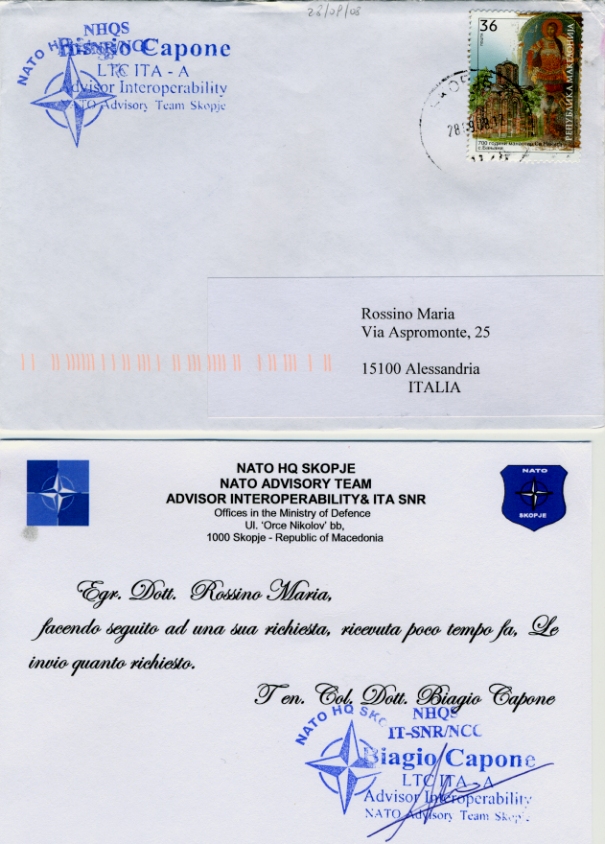 28/08/08
NHQS
Biagio Capone
LTC ITA - A
Advisor Interoperability
NATO Advisory Team Skopje
NATO HQ
36
РЕПУБЛИКА МАКЕДОНИЈА
700 години манастир Св.
Rossino Maria
Via Aspromonte, 25
15100 Alessandria
ITALIA
NATO HQ SKOPJE
NATO ADVISORY TEAM
ADVISOR INTEROPERABILITY& ITA SNR
Offices in the Ministry of Defence
Ul. 'Orce Nikolov' bb,
1000 Skopje - Republic of Macedonia
NATO
SKOPJE
Egr. Dott. Rossino Maria,
facendo seguito ad una sua richiesta, ricevuta poco tempo fa, Le
invio quanto richiesto.
Ten. Col. Dott. Biagio Capone
NATO HQ SKO
NHQS
IT-SNR/NCC
Biagio Capone
LTC ITA - A
Advisor Interoperability
NATO Advisory Team Skopje